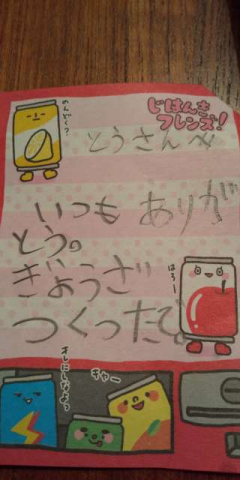 のんどく?
じはんき
フレンズ!
とうさんへ
いつも ありが
とうの
ぎょうざ
はろー
つくったよ
オレにしなよっ
チャー